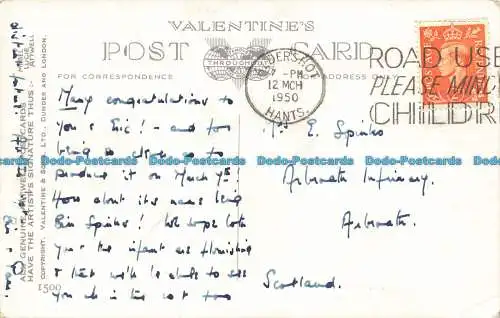 VALENTINE'S
POST CARD
FOR CORRESPONDENCE
ADDRESS ON
12 MCH
1950
HANTS.
ROAD USE
PLEASE MIND
CHILDR
POSTAGE
Many congratulations to
you & Eric! - and for
being so clever as to
produce it on March 4th!
How about its name being
Spinks! We hope both
you & the infant are flourishing
& that we'll be able to see
you all in the not too
Mrs E. Spinks
Arbroath Infirmary,
Arbroath.
Scotland.
ALL GENUINE
HAVE THE ARTIST'S SIGNATURE THUS:-
MABEL LUCIE ATTWELL
COPYRIGHT. VALENTINE & SONS, LTD., DUNDEE AND LONDON.
1500
Dado-Postcards Dado-Postcards Dado-Postcards Dado-Postcards Dado-Postcards